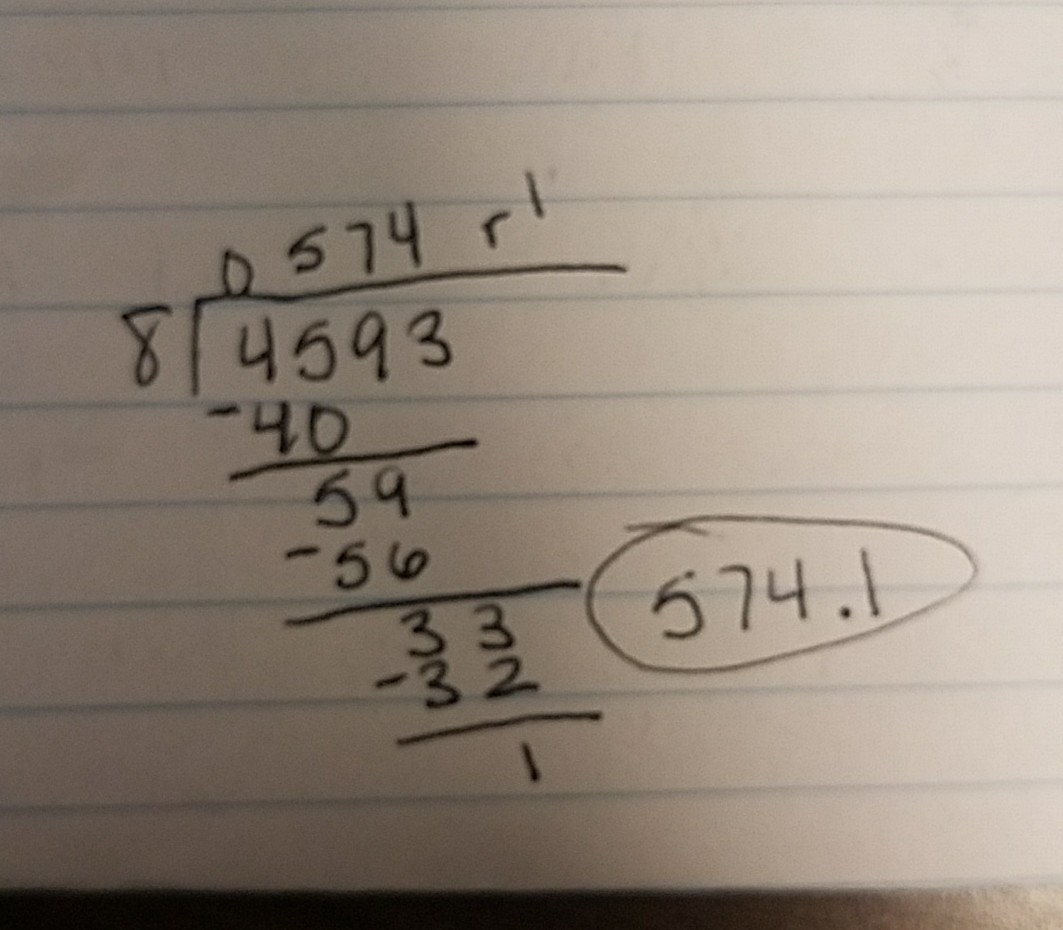 0 574 r 1
8 4593
-40
59
-56
33
-32
1
574.1